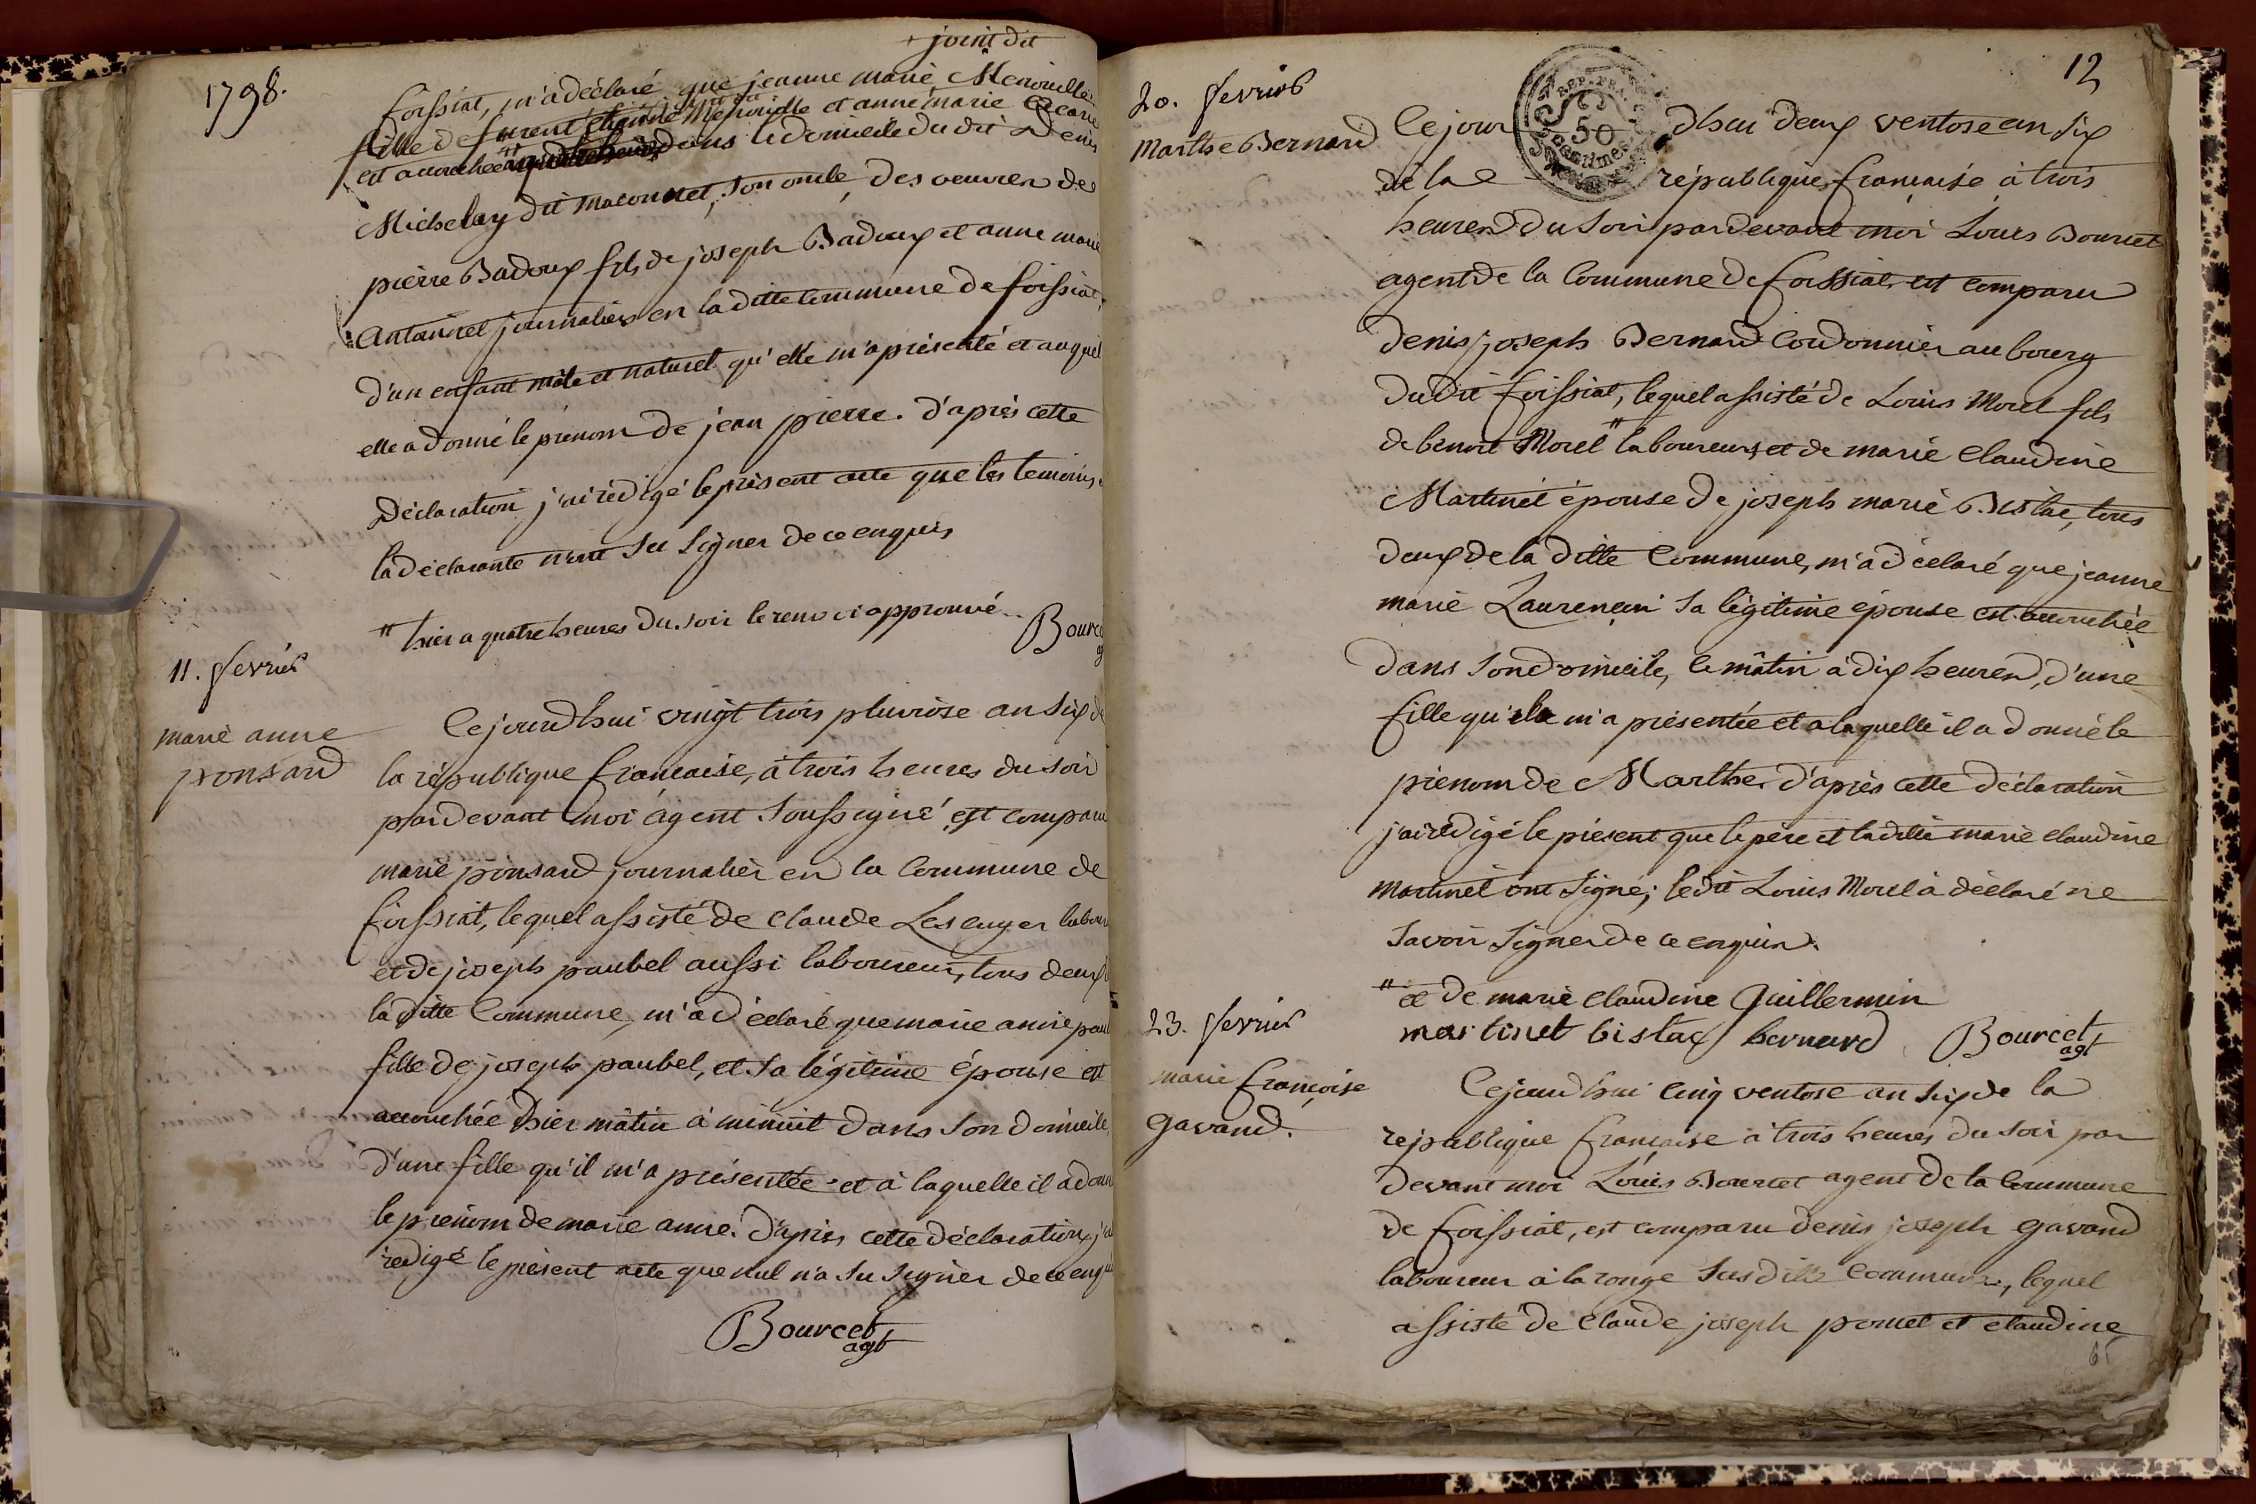 joint dit
1798.
foissiat, m'a déclaré que jeanne marie Menouille
fille de furent Menouille et anne marie
est accouchée dans le domicile du dit Denis
Michelay dit maconnet, son oncle, des oeuvres de
pierre Badoux fils de joseph Badoux et anne marie
Antoinet journalier en la ditte Commune de foissiat,
d'un enfant mâle et naturel qu'elle m'a présenté et auquel
elle a donné le prénom de jean pierre. d'après cette
Déclaration j'ai rédigé le présent acte que les temoins
la déclarante n'ont su signer de ce enquis
# hier a quatre heures du soir le renvoi approuvé
Bource
11. fevrier
marie anne
ponsard
Cejourdhui vingt trois pluviose an six de
la république francaise, à trois heures du soir
pardevant moi agent soussigné est comparu
marie ponsard journalier en la Commune de
foissiat, lequel assisté de Claude Lescuyer labou
et de joseph paubel aussi laboureur, tous deux
la ditte Commune, m'a déclaré que marie anne pau
fille de joseph paubel, et sa légitime épouse est
accouchée hier mâtin à minuit dans son domicile,
d'une fille qu'il m'a présentée et à laquelle il a donn
le prénom de marie anne. d'après cette déclaration, j'ai
rédigé le présent acte que nul n'a su signer de ce enqu
Bourcet
agt
12
20. fevrier
Marthe Bernard
REP. FRA.
50
Centimes
Cejour dhui deux ventose an six
de la république francaise à trois
heures du soir pardevant moi Louis Bourcet
agent de la Commune de foissiat, est comparu
denis joseph Bernard Cordonnier au bourg
dudit foissiat, lequel assisté de Louis Morel fils
de benoit Morel # laboureurs et de marie Claudine
Martinet épouse de joseph marie Bistac, tous
deux de la ditte Commune, m'a déclaré que jeanne
marie Laurencin sa légitime épouse est accouchée
dans son domicile, ce mâtin à dix heures, d'une
fille qu'il m'a présentée et a laquelle il a donné le
prénom de Marthe. d'après cette déclaration
j'ai rédigé le présent que le père et la ditte marie claudine
martinet ont signé; le dit Louis Morel à déclaré ne
savoir signer de ce enquis.
# et de marie Claudine Guillermin
martinet bistac bernard Bourcet
agt
23. fevrier
marie françoise
gavand.
Cejourdhui cinq ventose an six de la
republique francaise à trois heures du soir par
devant moi Louis Bourcet agent de la Commune
de foissiat, est comparu denis joseph gavand
laboureur à la ronge susditte commune, lequel
assisté de Claude joseph pomet et claudine